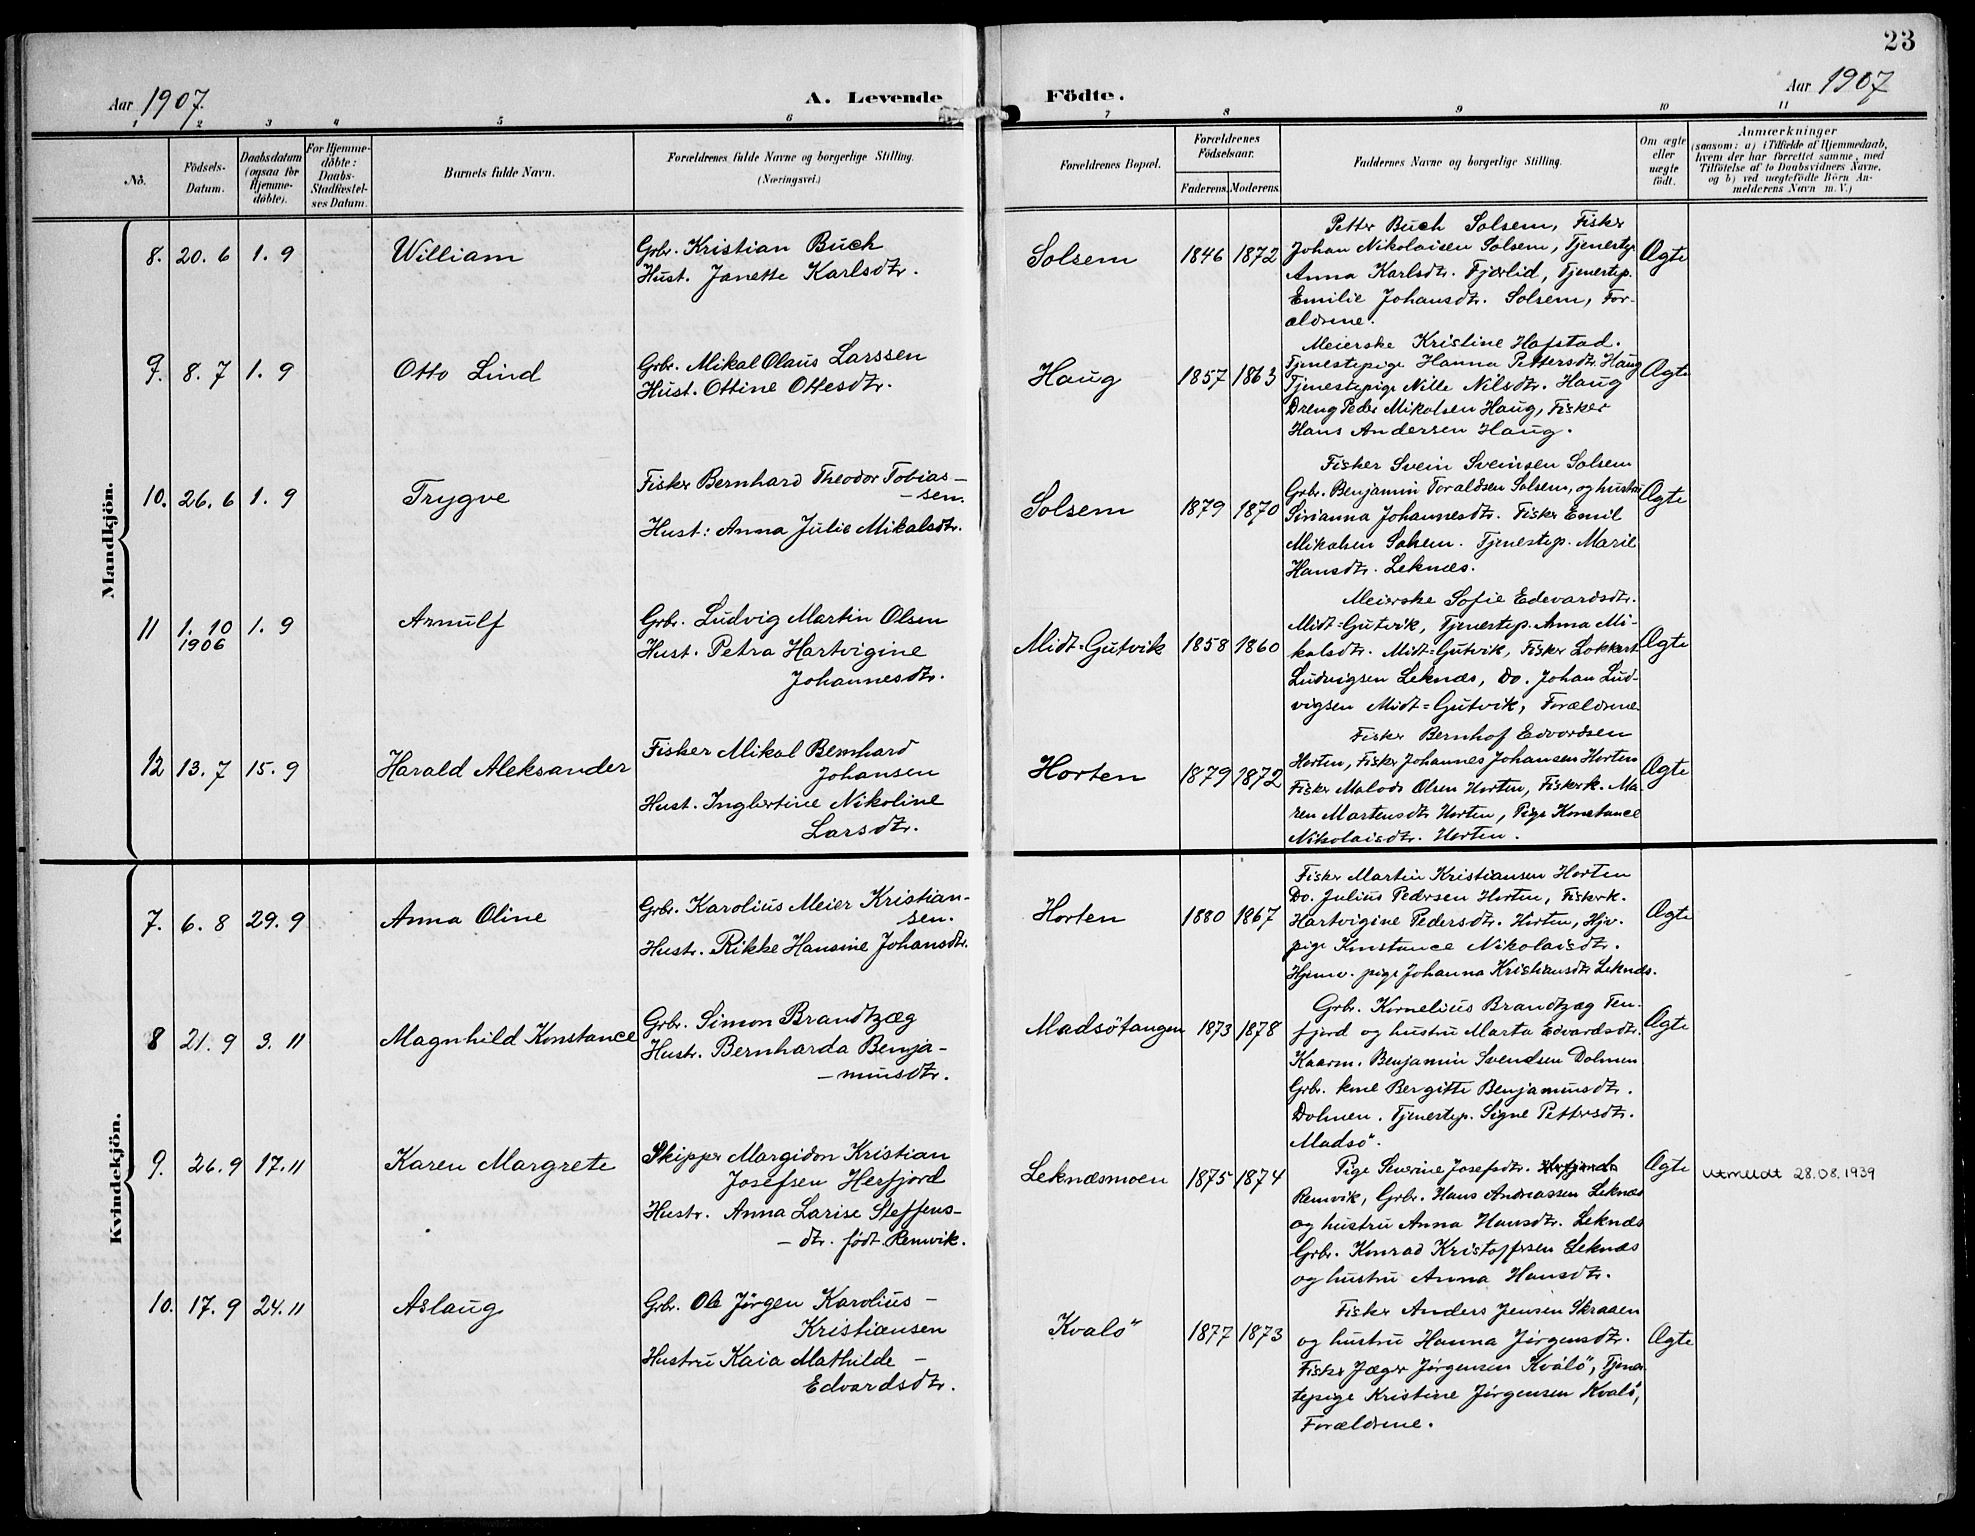 23
Aar 1907.
A. Levende
Födte.
Aar 1907
1 2 3 4 5 6 7 8 9 10 11
No.
Födsels-
Datum.
Daabsdatum
(ogsaa for
Hjemme-
döbte).
For Hjemme-
döbte:
Daabs-
Stadfæstel-
ses Datum.
Barnets fulde Navn.
Forældrenes fulde Navne og borgerlige Stilling.
(Næringsvei.)
Forældrenes Bopæl.
Forældrenes
Födselsaar.
Faderens. Moderens.
Faddernes Navne og borgerlige Stilling.
Om ægte
eller
uægte
født.
Anmærkninger
(saasom: a) i Tilfælde af Hjemmedaab,
hvem der har forrettet samme, med
Tilföielse af to Daabsvidners Navne,
og b) ved uægtefödte Börn An-
melderens Navn m. V.)
Mandkjön.
8. 20. 6 1. 9 William
Grbr. Kristian Buch
Hust. Janette Karlsdtr.
Solsem 1846 1872
Petter Buch Solsem, Fisker
Johan Nikolaisen Solsem, Tjenestp.
Anna Karlsdtr. Fjærlid, Tjenestp.
Emilie Johansdtr. Solsem, For-
ældrene.
Ægte
9. 8. 7 1. 9 Otto Lind
Grbr. Mikal Olaus Larssen
Hust. Ottine Ottesdtr.
Haug 1857 1863
Meierske Kristine Hafstad.
Tjenestepige Hanna Pettersdtr. Haug
Tjenestepige Nille Nilsdtr. Haug
Dreng Peder Mikalsen Haug, Fisker
Hans Andersen Haug.
Ægte
10. 26. 6 1. 9 Trygve
Fisker Bernhard Theodor Tobias-
-sen.
Hust: Anna Julie Mikalsdtr.
Solsem 1879 1870
Fisker Svein Sveinsen Solsem
Grbr. Benjamin Toraldsen Solsem, og hustru
Sirianna Johannesdtr. Fisker Emil
Mikalsen Solsem. Tjenestep. Marie
Hansdtr. Leknæs.
Ægte
11 1. 10 1. 9 Arnulf
1906
Grbr. Ludvig Martin Olsen
Hust. Petra Hartvigine
Johannesdtr.
Midt=Gutvik 1858 1860
Meierske Sofie Edevardsdtr.
Midt=Gutvik, Tjenestep. Anna Mi-
kalsdtr. Midt=Gutvik, Fisker Lokkert
Ludvigsen Leknæs, Do. Johan Lud-
vigsen Midt=Gutvik, Forældrene
Ægte
12 13. 7 15. 9 Harald Aleksander
Fisker Mikal Bernhard
Johansen
Hust. Ingbertine Nikoline
Larsdtr.
Horten 1879 1872
Fisker Bernhof Edvardsen
Horten, Fisker Johannes Johansen Horten
Fisker Malods Olsen Horten, Fiskerk. Ma-
ren Martensdtr Horten, Pige Konstance
Nikolaisdtr. Horten.
Ægte
Kvindekjön.
7. 6. 8 29. 9 Anna Oline
Grbr. Karolius Meier Kristian-
sen.
Hustr. Rikke Hansine Johansdtr.
Horten 1880 1867
Fisker Martin Kristiansen Horten
Do. Julius Pedersen Horten, Fiskerk.
Hartvigine Pedersdtr. Horten, Hjv.
pige Konstance Nikolaisdtr.
Hjemv. pige Johanna Kristiansdtr Leknæs.
Ægte
8 21. 9 3. 11 Magnhild Konstance
Grbr. Simon Brandtzæg
Hustr. Bernharda Benja-
-minsdtr.
Madsötangen 1873 1878
Grbr. Kornelius Brandtzæg Ten-
fjord og hustru Marta Edvardsdtr.
Kaarm. Benjamin Svendsen Dolmen
Grbr. kone Bergitte Benjaminsdtr.
Dolmen. Tjenestep. Signe Pettersdtr.
Madsö.
Ægte
9. 26. 9 17. 11 Karen Margrete
Skipper Margidon Kristian
Josefsen Herfjord
Hustr. Anna Larise Steffens-
-dtr. født Remvik.
Leknæsmoen 1875 1874
Pige Severine Josefsdtr. Herfjord
Remvik, Grbr. Hans Andreassen Leknæs
og hustru Anna Hansdtr. Leknæs
Grbr. Konrad Kristoffersen Leknæs
og hustru Anna Hansdtr.
Ægte
Utmeldt 28.08.1939
10. 17. 9 24. 11 Aslaug
Grbr. Ole Jörgen Karolius-
Kristiansen
Hustru Kaia Mathilde-
Edvardsdtr.
Kvalö 1877 1873
Fisker Anders Jensen Skraaen
og hustru Hanna Jörgensdtr.
Fisker Jæger Jörgensen Kvalö, Tjenes-
tepige Kristine Jörgensen Kvalö,
Forældrene.
Ægte